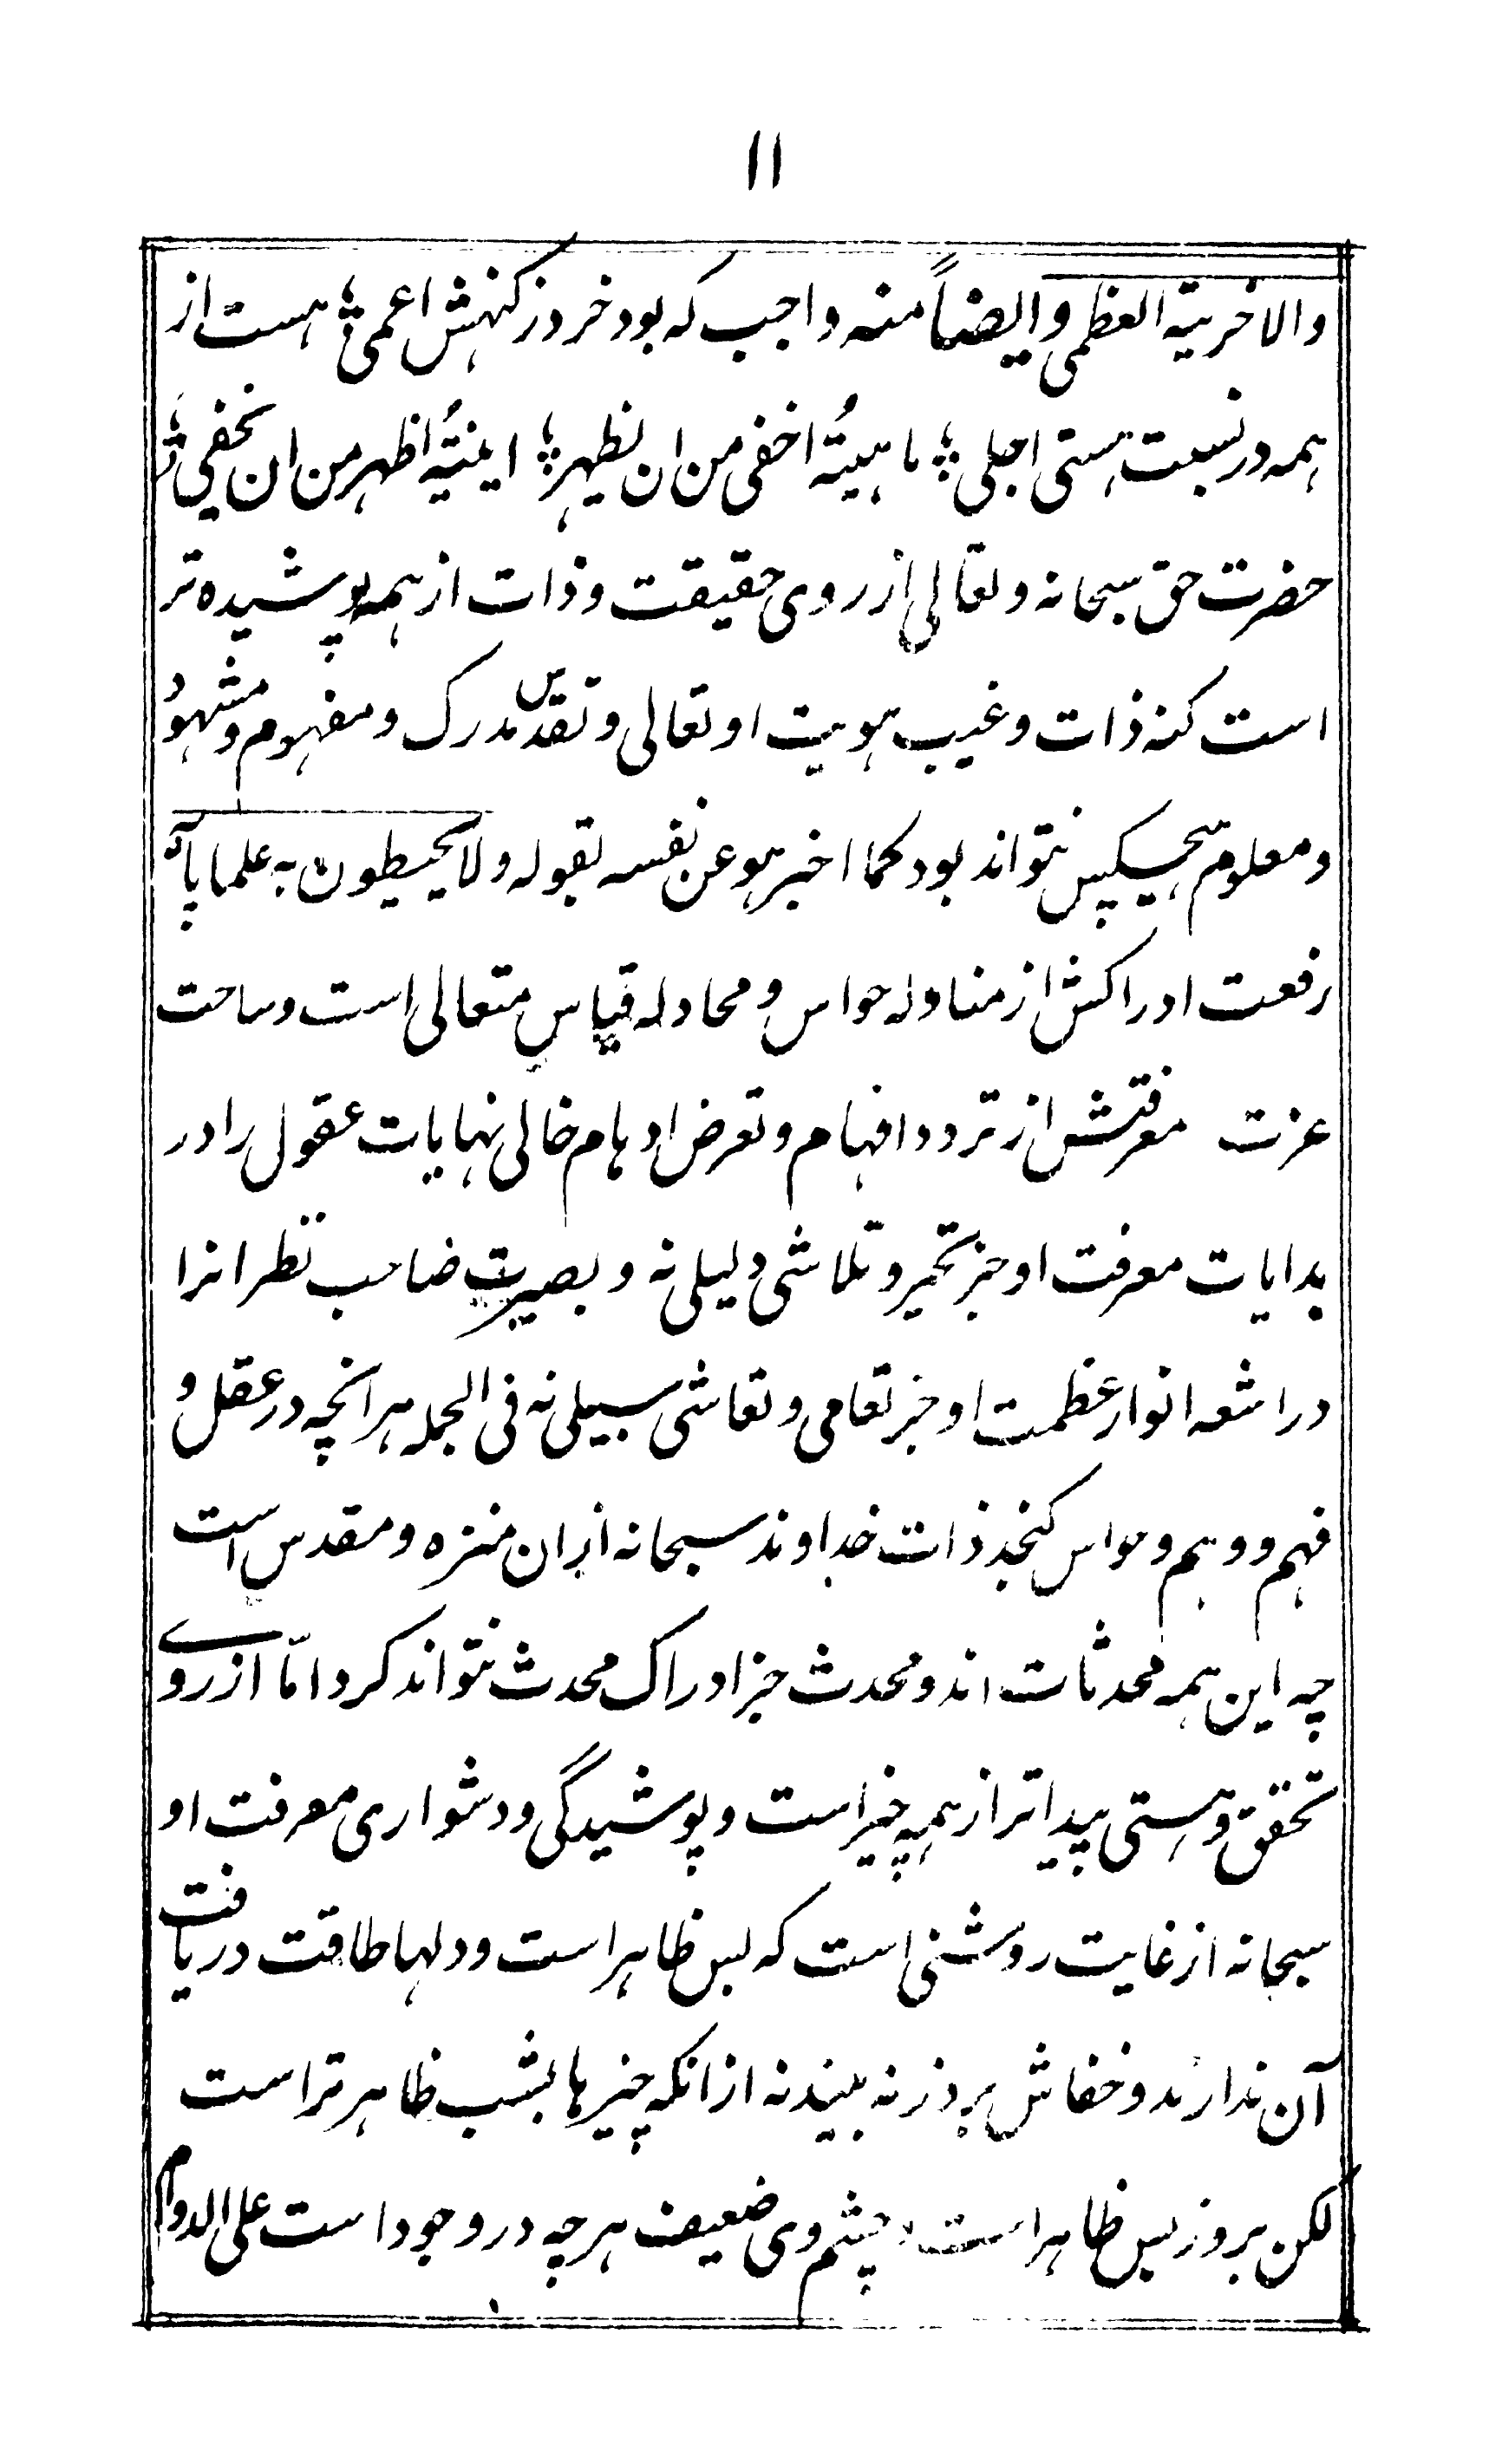 ۱۱
والاخریته العظمی وایضاً منه واجب که بود خرد ز کنهش اعمی ؛ هست از
همه در نسبت هستی اجلی ؛ ماهیتُه اخفی من ان یظهر ؛ اینیتُه اظهر من ان یخفی ؛
حضرت حق سبحانه وتعالی از روی حقیقت و ذات از همه پوشیده تر
است کنه ذات و غیب هویت او تعالی و تقدس مدرک و مفهوم و مشهود
و معلوم هیچکس نتواند بود کما اخبر هو عن نفسه بقوله ولا یحیطون به علما پایه
رفعت ادراکش از مناوله حواس و محادله قیاس متعالی است و ساحت
عزت معرفتش از تردد افهام و تعرض اوهام خالی نهایات عقول را در
بدایات معرفت او جز تحیر و تلاشی دلیلی نه و بصیرت صاحب نظرانرا
در اشعه انوار عظمت او جز تعامی و تعاشی سبیلی نه فی الجمله هر انچه در عقل و
فهم و وهم و حواس گنجد ذات خداوند سبحانه ازان منزه و مقدس است
چه این همه محدثات اند و محدث جز ادراک محدث نتواند کرد امّا از روے
تحقق و هستی پیداتر از همه چیز است و پوشیدگی و دشواری معرفت او
سبحانه از غایت روشنی است که بس ظاهر است و دلها طاقت دریافت
آن ندارند و خفاش بروز نه بیند نه ازانکه چیزها بشب ظاهر تر است
لکن بروز بس ظاهر است و چشم وی ضعیف هر چه در وجود است علی الدوام